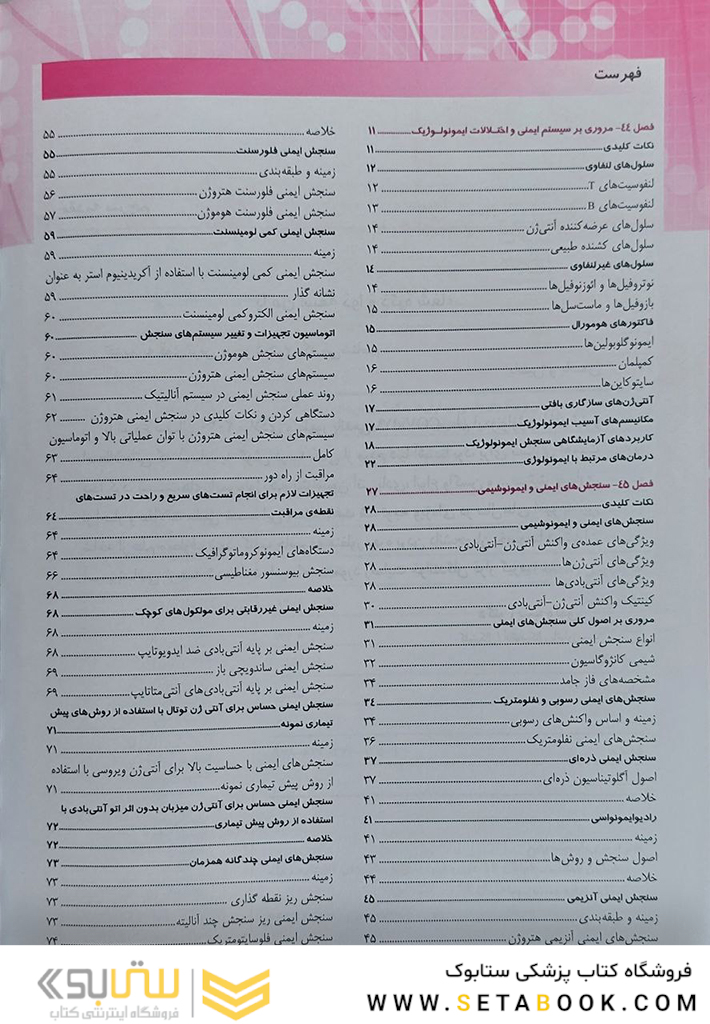 فهرست
فصل ٤٤- مروری بر سیستم ایمنی و اختلالات ایمونولوژیک ۱۱
نکات کلیدی ۱۱
سلول‌های لنفاوی ۱۲
لنفوسیت‌های T ۱۲
لنفوسیت‌های B ۱۳
سلول‌های عرضه‌کننده آنتی‌ژن ۱۴
سلول‌های کشنده طبیعی ۱۴
سلول‌های غیرلنفاوی ۱٤
نوتروفیل‌ها و ائوزنوفیل‌ها ۱۴
بازوفیل‌ها و ماست‌سل‌ها ۱۵
فاکتورهای هومورال ۱۵
ایمونوگلوبولین‌ها ۱۵
کمپلمان ۱۶
سایتوکاین‌ها ۱۶
آنتی‌ژن‌های سازگاری بافتی ۱۷
مکانیسم‌های آسیب ایمونولوژیک ۱۷
کاربردهای آزمایشگاهی سنجش ایمونولوژیک ۱۸
درمان‌های مرتبط با ایمونولوژی ۲۲
فصل ٤٥- سنجش‌های ایمنی و ایمونوشیمی ۲۷
نکات کلیدی ۲۸
سنجش‌های ایمنی و ایمونوشیمی ۲۸
ویژگی‌های عمده‌ی واکنش آنتی‌ژن-آنتی‌بادی ۲۸
ویژگی‌های آنتی‌ژن‌ها ۲۸
ویژگی‌های آنتی‌بادی‌ها ۲۸
کینتیک واکنش آنتی‌ژن-آنتی‌بادی ۳۰
مروری بر اصول کلی سنجش‌های ایمنی ۳۱
انواع سنجش ایمنی ۳۱
شیمی کانژوگاسیون ۳۲
مشخصه‌های فاز جامد ۳۴
سنجش‌های ایمنی رسوبی و نفلومتریک ۳٤
زمینه و اساس واکنش‌های رسوبی ۳۴
سنجش‌های ایمنی نفلومتریک ۳۶
سنجش ایمنی ذره‌ای ۳۷
اصول آگلوتیناسیون ذره‌ای ۳۷
خلاصه ۴۱
رادیوایمونواسی ٤۱
زمینه ۴۱
اصول سنجش و روش‌ها ۴۳
خلاصه ۴۴
سنجش ایمنی آنزیمی ٤٥
زمینه و طبقه‌بندی ۴۵
سنجش‌های ایمنی آنزیمی هتروژن ۴۵
خلاصه ۵۵
سنجش ایمنی فلورسنت ۵۵
زمینه و طبقه‌بندی ۵۵
سنجش ایمنی فلورسنت هتروژن ۵۶
سنجش ایمنی فلورسنت هوموژن ۵۷
سنجش ایمنی کمی لومینسنت ۵۹
زمینه ۵۹
سنجش ایمنی کمی لومینسنت با استفاده از آکریدینیوم استر به عنوان
نشانه گذار ۵۹
سنجش ایمنی الکتروکمی لومینسنت ۶۰
اتوماسیون تجهیزات و تغییر سیستم‌های سنجش ۶۰
سیستم‌های سنجش هوموژن ۶۰
سیستم‌های سنجش ایمنی هتروژن ۶۰
روند عملی سنجش ایمنی در سیستم آنالیتیک ۶۱
دستگاهی کردن و نکات کلیدی در سنجش ایمنی هتروژن ۶۲
سیستم‌های سنجش ایمنی هتروژن با توان عملیاتی بالا و اتوماسیون
کامل ۶۳
مراقبت از راه دور ۶۴
تجهیزات لازم برای انجام تست‌های سریع و راحت در تست‌های
نقطه‌ی مراقبت ٦٤
زمینه ۶۴
دستگاه‌های ایمونوکروماتوگرافیک ۶۴
سنجش بیوسنسور مغناطیسی ۶۶
خلاصه ۶۸
سنجش ایمنی غیررقابتی برای مولکول‌های کوچک ۶۸
زمینه ۶۸
سنجش ایمنی بر پایه آنتی‌بادی ضد ایدیوتایپ ۶۸
سنجش ایمنی ساندویچی باز ۶۹
سنجش ایمنی بر پایه آنتی‌بادی‌های آنتی‌متاتایپ ۶۹
سنجش ایمنی حساس برای آنتی ژن توتال با استفاده از روش‌های پیش
تیماری نمونه ۷۱
زمینه ۷۱
سنجش‌های ایمنی با حساسیت بالا برای آنتی‌ژن ویروسی با استفاده
از روش پیش تیماری نمونه ۷۱
سنجش ایمنی حساس برای آنتی‌ژن میزبان بدون اثر اتو آنتی‌بادی با
استفاده از روش پیش تیماری ۷۲
خلاصه ۷۲
سنجش‌های ایمنی چندگانه همزمان ۷۳
زمینه ۷۳
سنجش ریز نقطه گذاری ۷۳
سنجش ایمنی ریز سنجش چند آنالیته ۷۳
سنجش ایمنی فلوسایتومتریک ۷۴
فروشگاه کتاب پزشکی ستابوک
WWW.SETABOOK.COM
ستابوک
فروشگاه اینترنتی کتاب